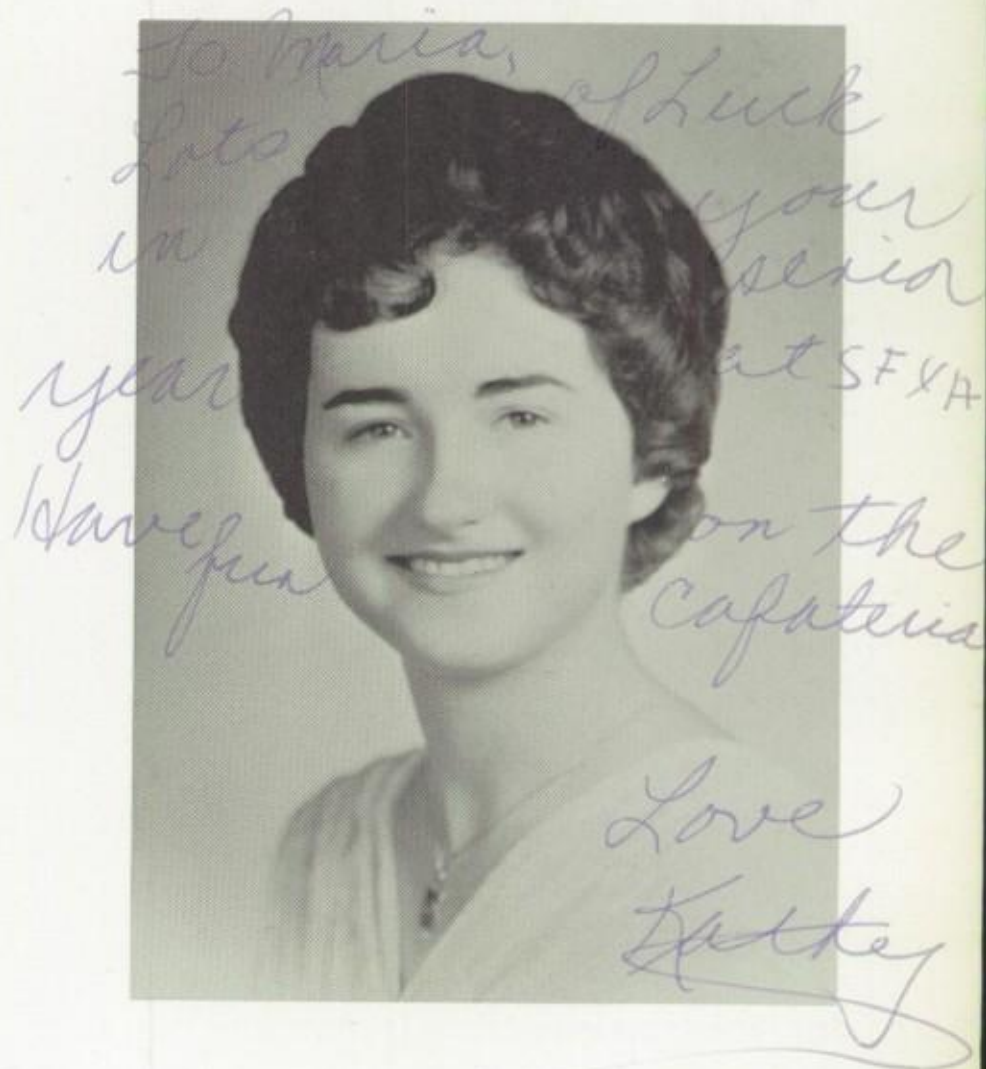 To Maria,
Lots of Luck
in your
senior
year at SFXA
Have fun on the
cafateria
Love
Kathey